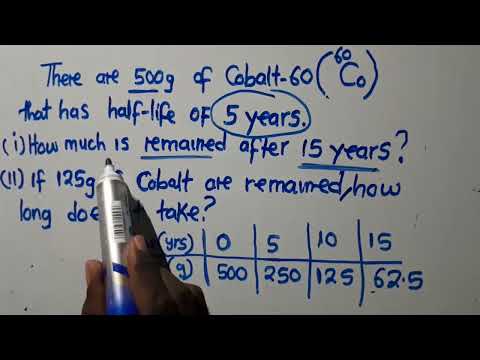 There are 500g of Cobalt-60 (⁶⁰Co)
that has half-life of 5 years.
(i) How much is remained after 15 years?
(ii) If 125g Cobalt are remained, how
long does take?
(yrs) 0 5 10 15
(g) 500 250 125 62.5